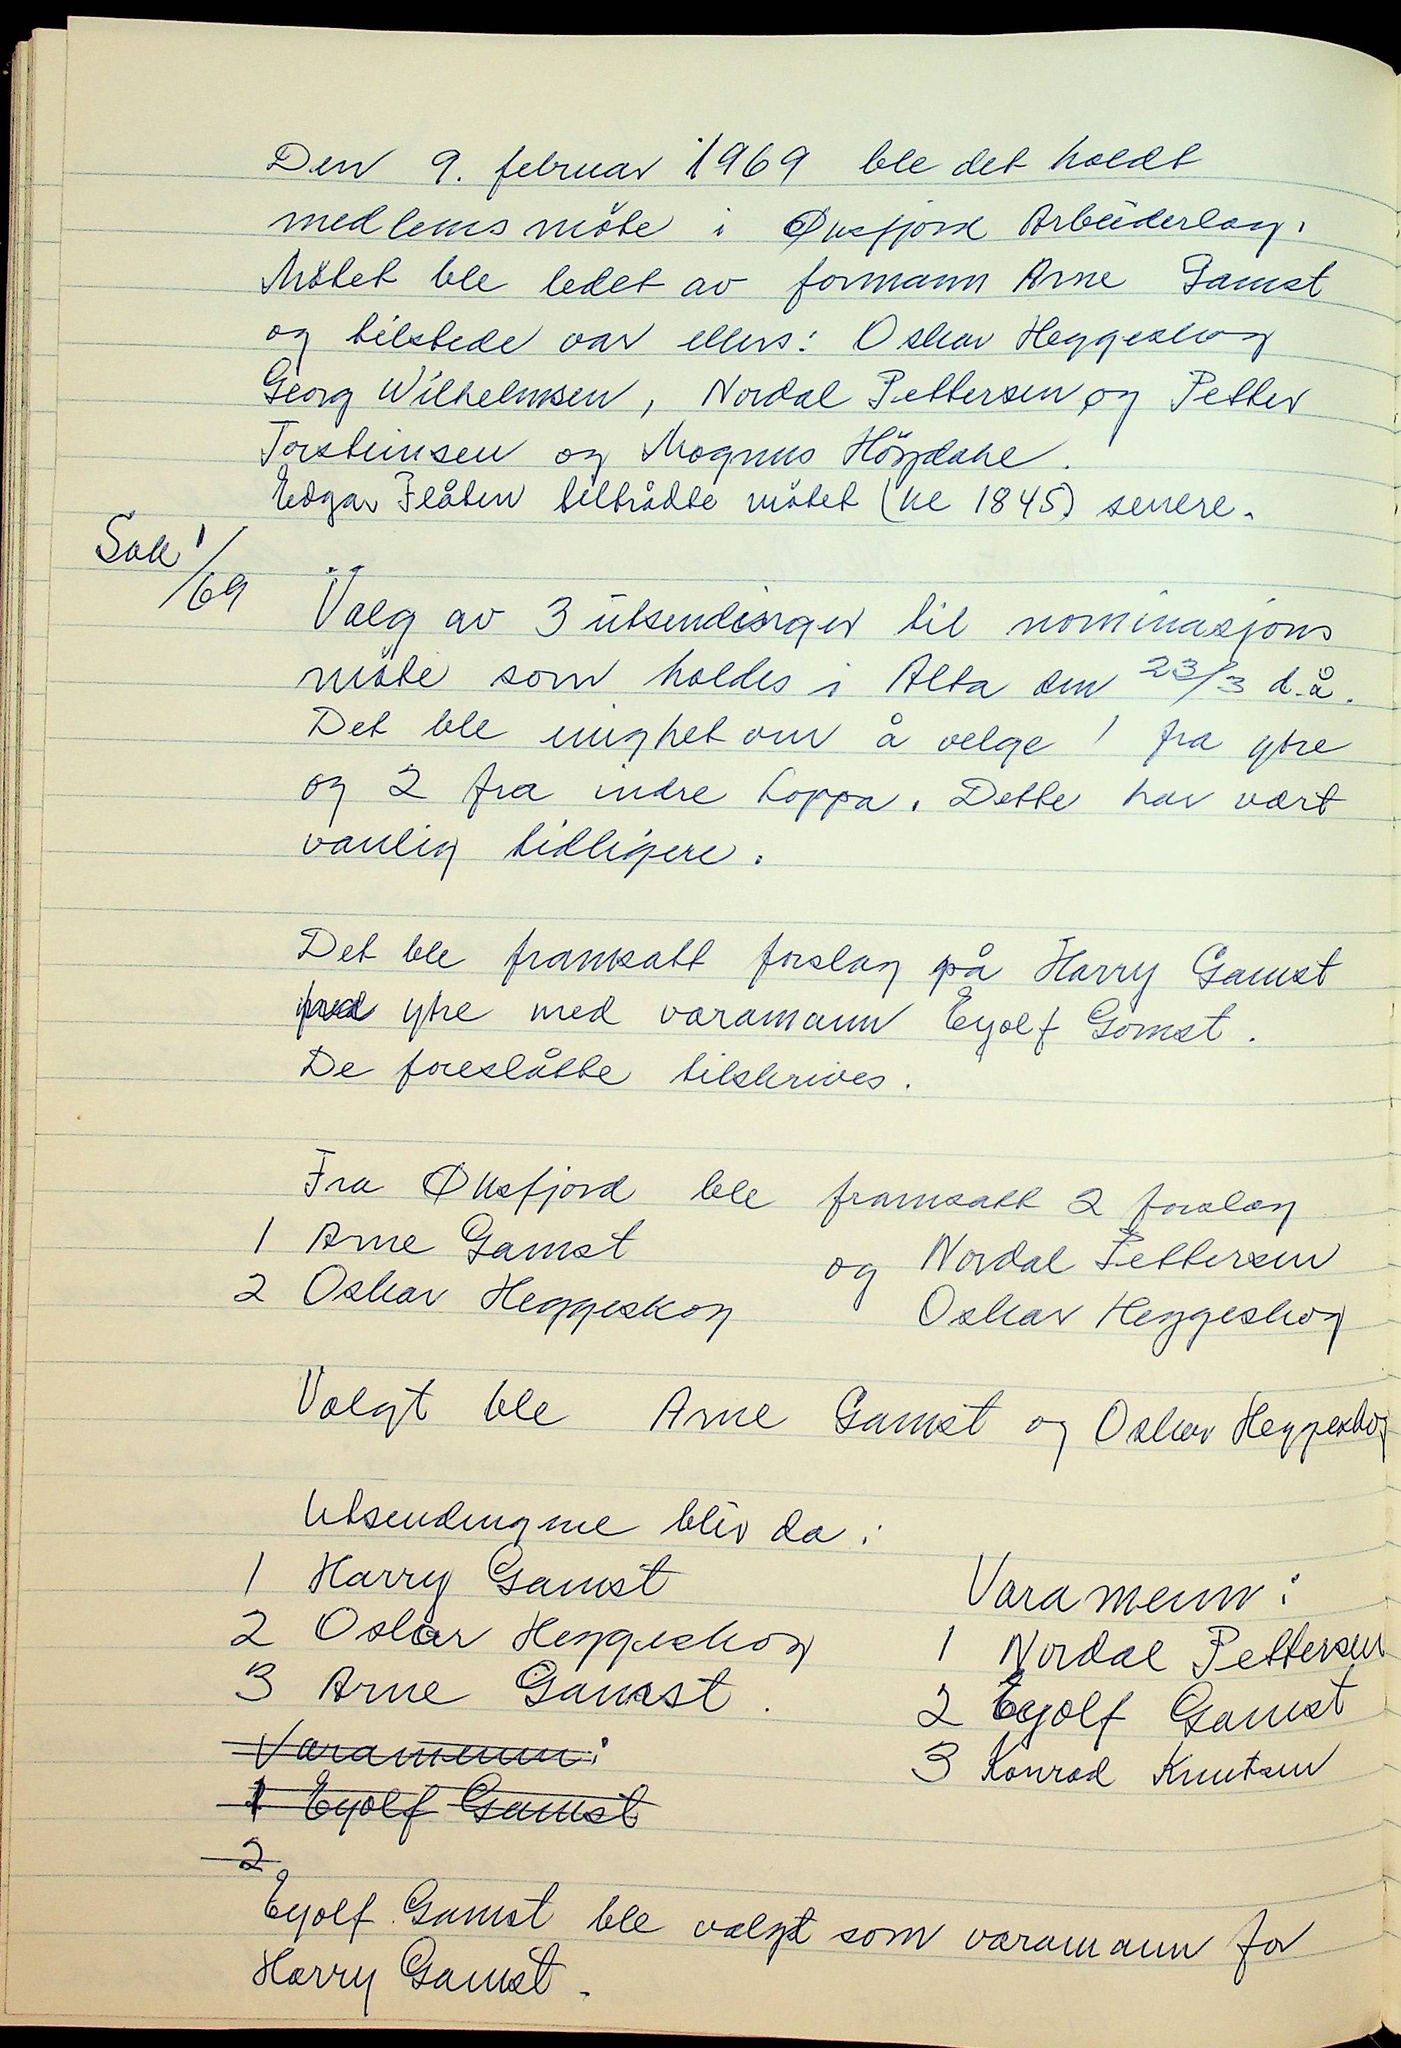 Den 9. februar 1969 ble det holdt
medlemsmöte i Øksfjord Arbeiderlag.
Mötet ble ledet av formann Arne Gamst
og tilstede var ellers: Oskar Heggeskog
Georg Wilhelmsen, Nordal Pettersen og Petter
Torsteinsen og Magnus Höydahl.
Edgar Flåten tiltrådte mötet (kl 1845) senere.
Sak 1/69
Valg av 3 utsendinger til nominasjons
möte som holdes i Alta den 23/3 d.å.
Det ble enighet om å velge 1 fra ytre
og 2 fra indre Loppa. Dette har vært
vanlig tidligere.
Det ble framsatt forslag på Harry Gamst
fra ytre med varamann Eyolf Gamst.
De foreslåtte tilskrives.
Fra Øksfjord ble framsatt 2 forslag
1 Arne Gamst og Nordal Pettersen
2 Oskar Heggeskog Oskar Heggeskog
Valgt ble Arne Gamst og Oskar Heggeskog
Utsendingene blir da:
1 Harry Gamst
2 Oskar Heggeskog
3 Arne Gamst.
Varamenn:
1 Eyolf Gamst
2
Varamenn:
1 Nordal Pettersen
2 Eyolf Gamst
3 Konrad Knutsen
Eyolf Gamst ble valgt som varamann for
Harry Gamst.